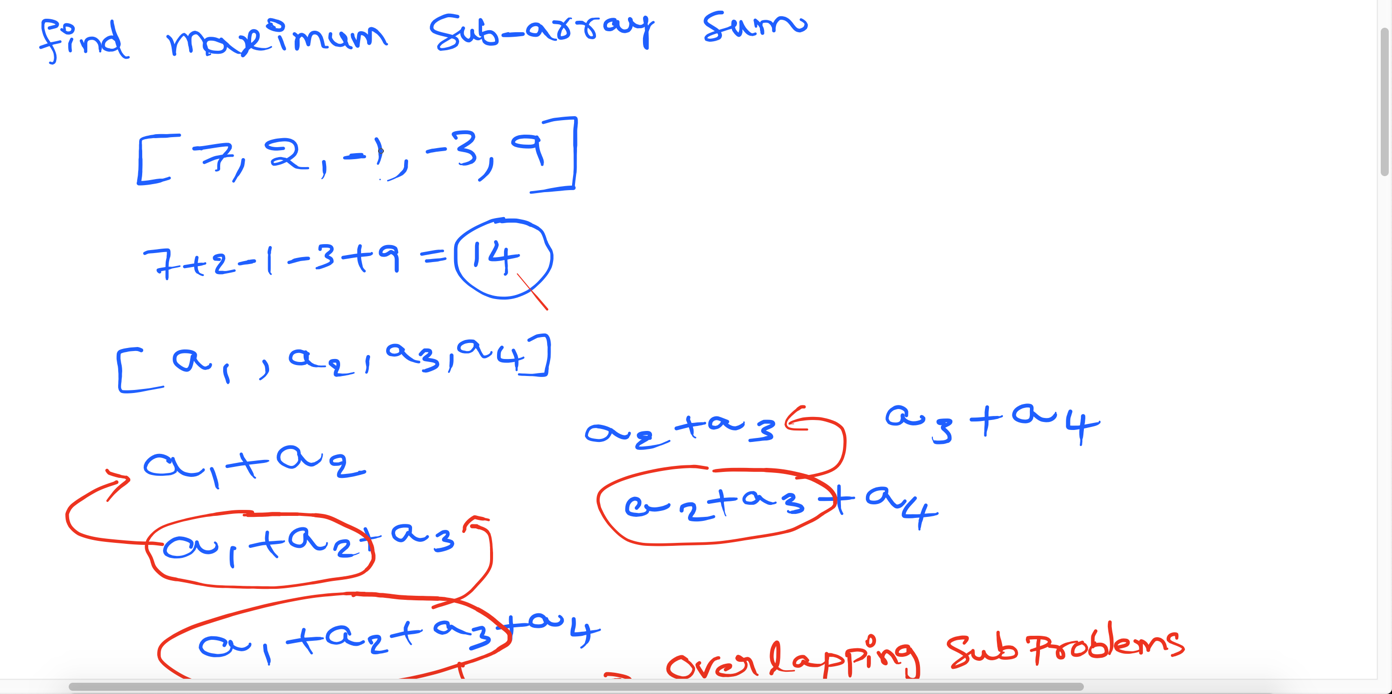 find maximum Sub-array sum
[7, 2, -1, -3, 9]
7+2-1-3+9 = 14
[a1, a2, a3, a4]
a1+a2
a1+a2+a3
a1+a2+a3+a4
a2+a3
a2+a3+a4
a3+a4
overlapping SubProblems